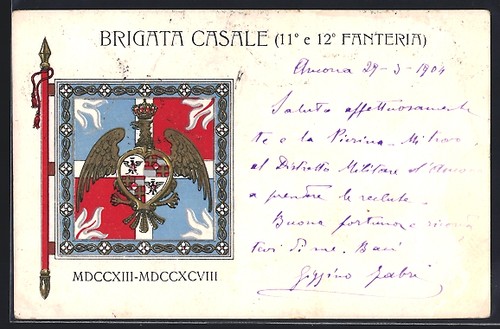 BRIGATA CASALE (11° e 12° FANTERIA)
Ancona 29-3-1904
Saluto affettuosamente
te e la Pierina. Mi trovo
al Distretto Militare d'Ancona
a prendere le reclute.
Buona fortuna e
di me. Baci
MDCCXIII-MDCCXCVIII